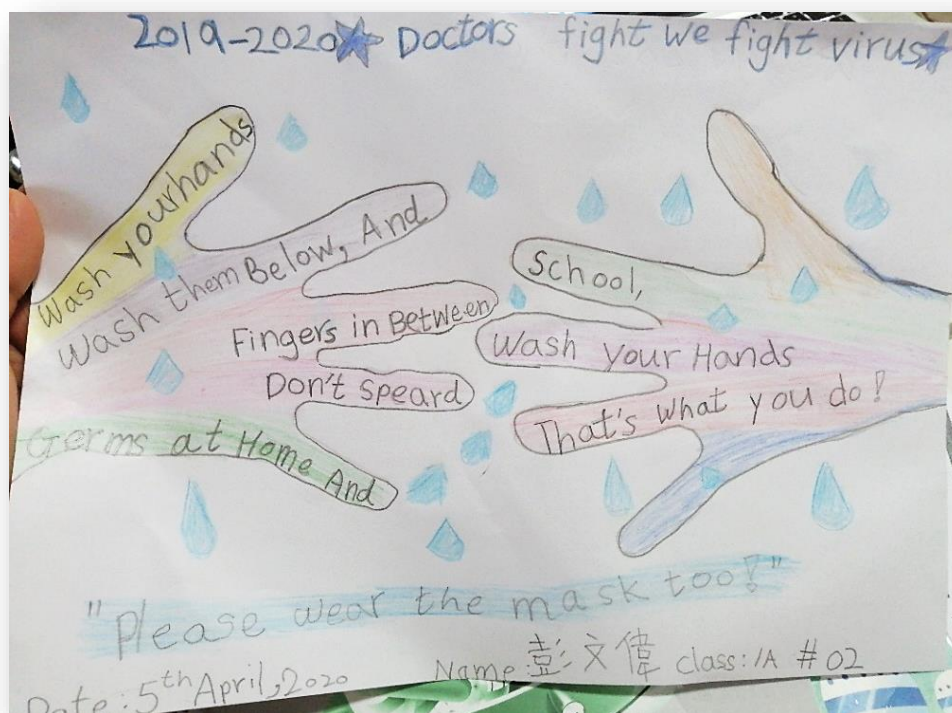 2019-2020 Doctors fight we fight virus
Wash your hands
Wash them Below, And
Fingers in Between
Don't speard
Germs at Home And
School,
Wash your Hands
That's what you do!
"Please wear the mask too!"
Date: 5th April, 2020 Name 彭文偉 class: 1A #02